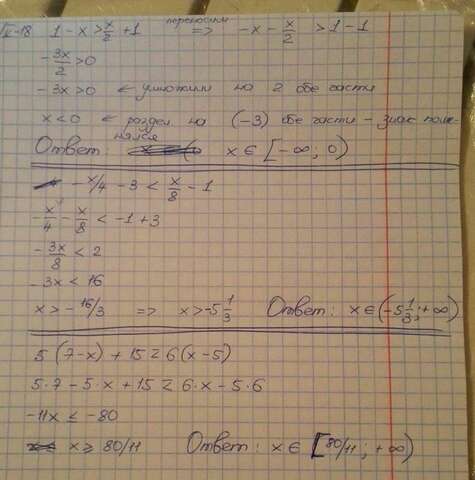 II-18 1-x > x/2 + 1 переносим => -x - x/2 > 1-1
-3x/2 > 0
-3x > 0 ← умножим на 2 обе части
x < 0 ← раздел на (-3) обе части - знак поменялся
Ответ: x ∈ [-∞; 0)
-x/4 - 3 < x/8 - 1
-x/4 - x/8 < -1 + 3
-3x/8 < 2
-3x < 16
x > -16/3 => x > -5 1/3 Ответ: x ∈ (-5 1/3; +∞)
5(7-x) + 15 ≥ 6(x-5)
5·7 - 5·x + 15 ≥ 6·x - 5·6
-11x ≤ -80
x ≥ 80/11 Ответ: x ∈ [80/11; +∞)